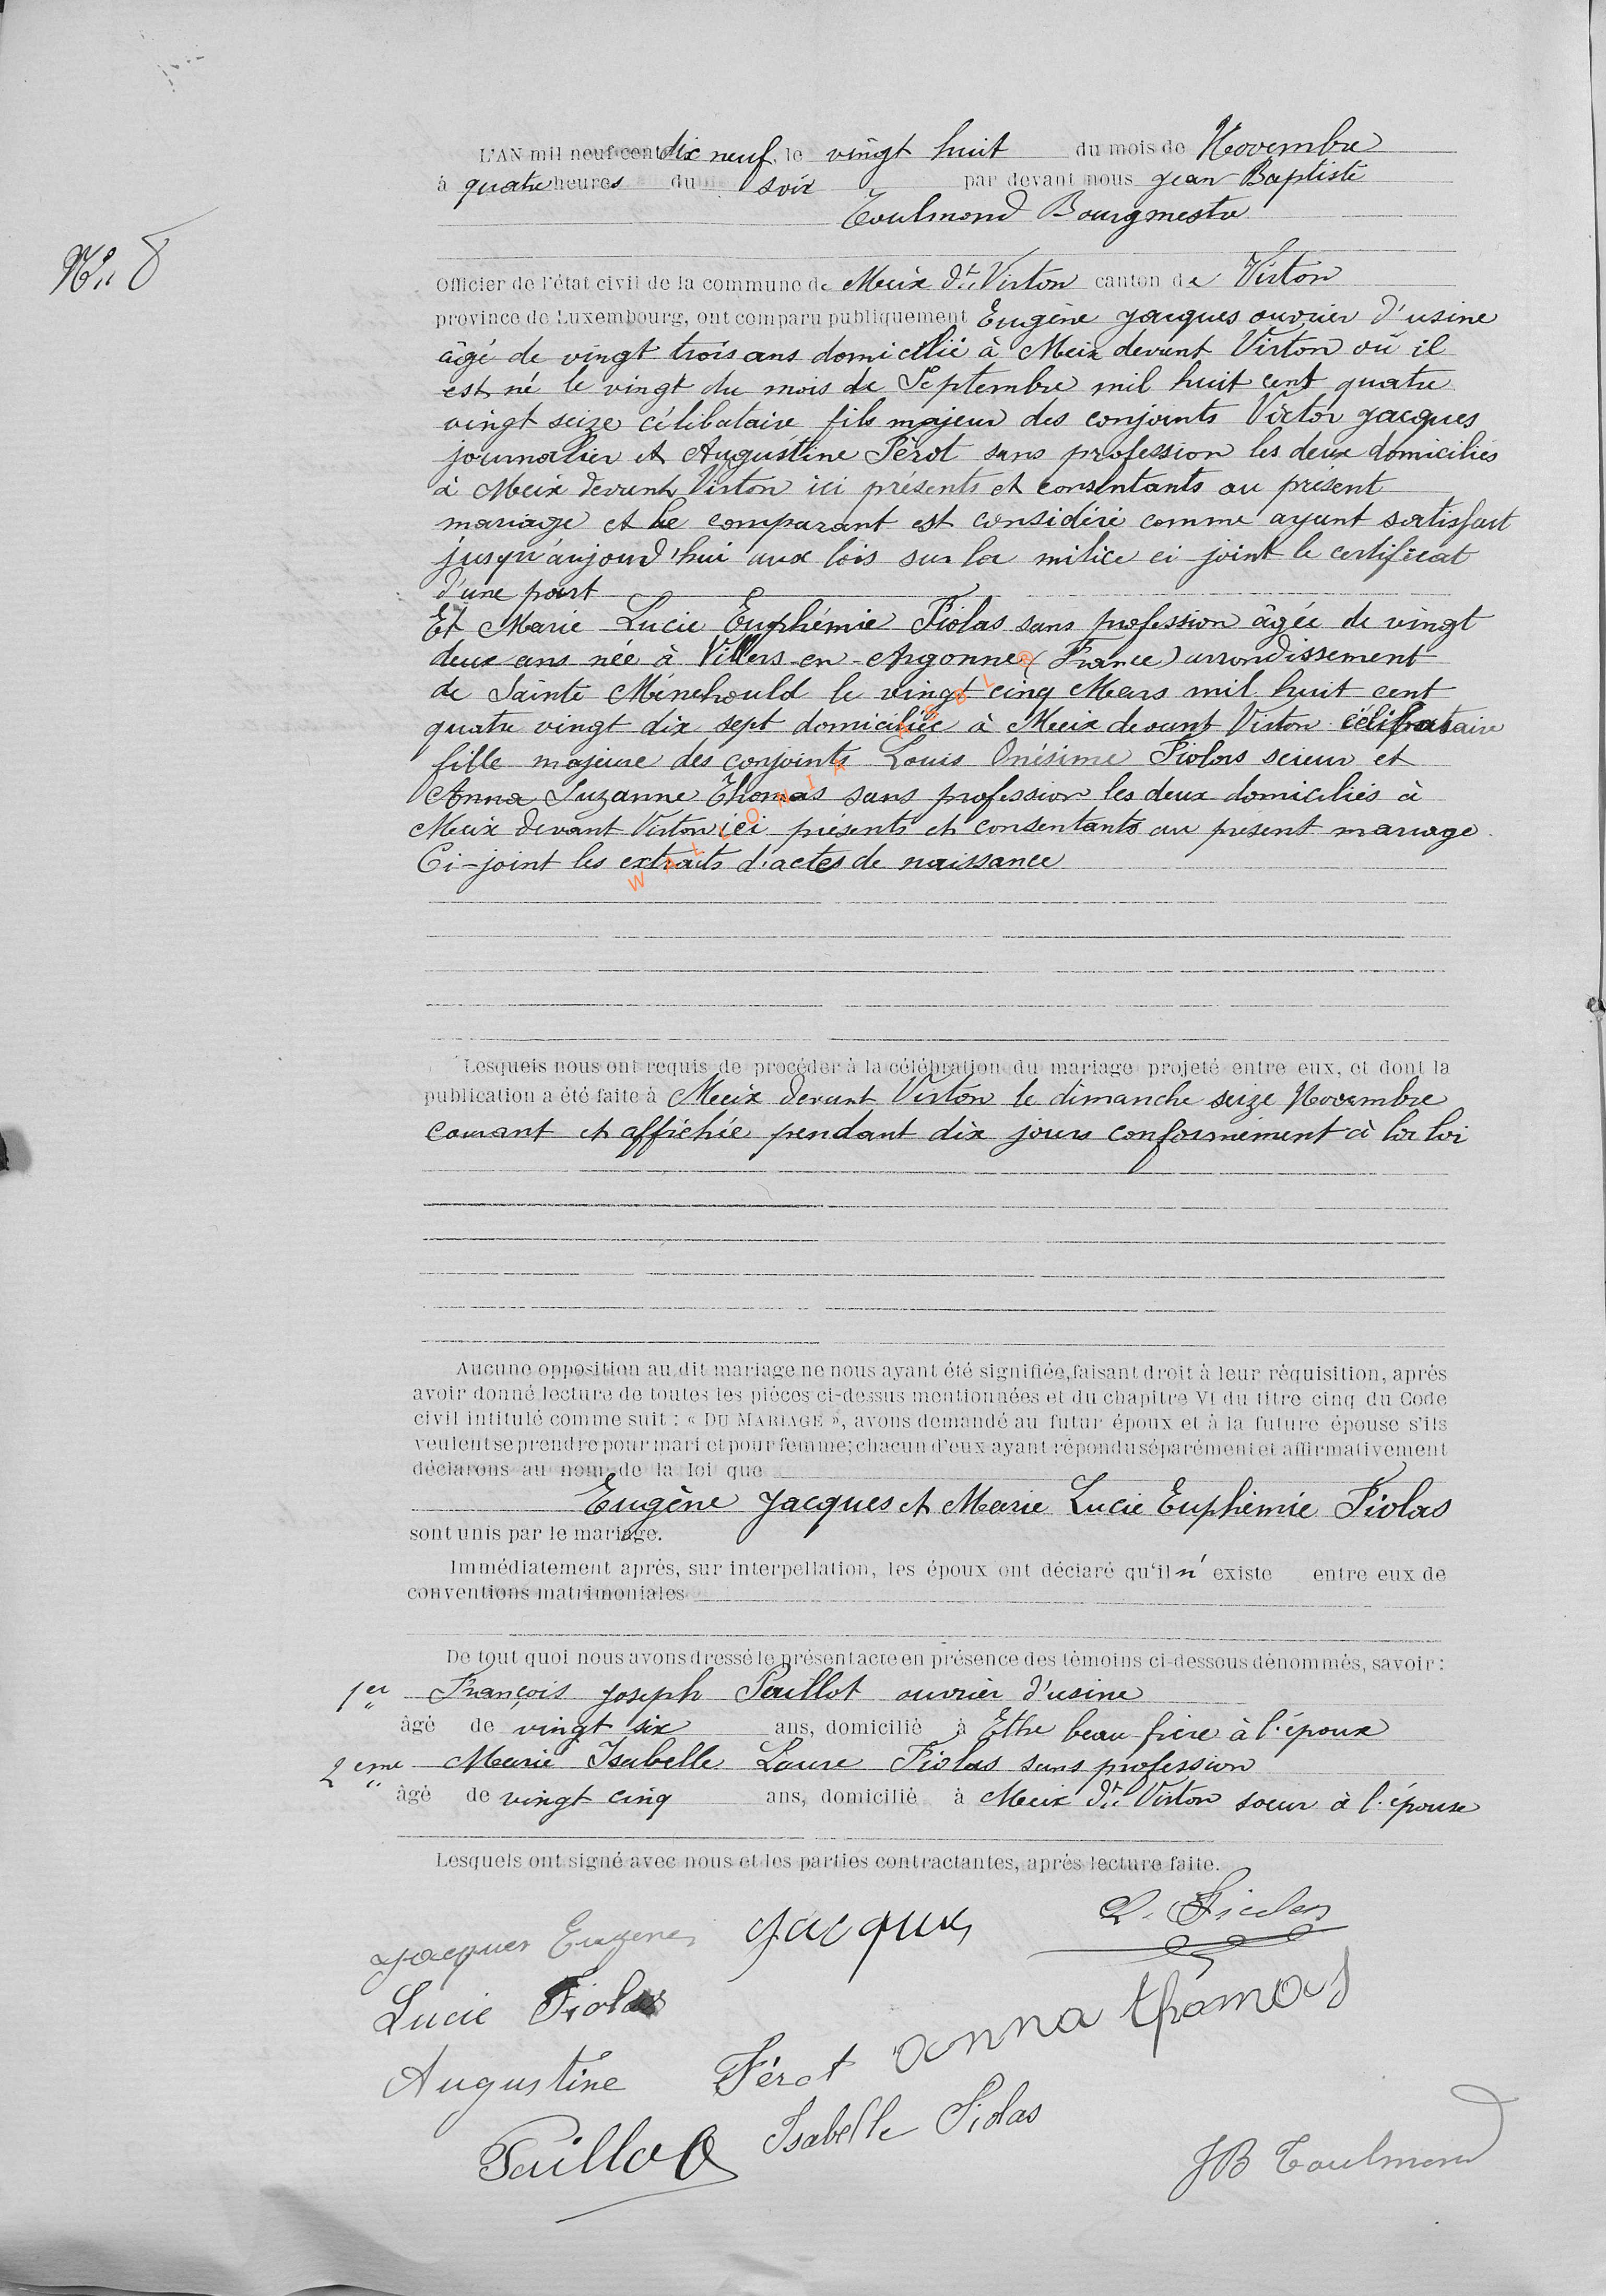 L'AN mil neuf cent dix neuf, le vingt huit du mois de Novembre
à quatre heures du soir par devant nous Jean Baptiste
Toulmond Bourgmestre
No. 8
Officier de l'état civil de la commune de Meix dt. Virton canton de Virton
province de Luxembourg, ont comparu publiquement Eugène Jacques ouvrier d'usine
âgé de vingt trois ans domicilié à Meix devant Virton où il
est né le vingt du mois de Septembre mil huit cent quatre
vingt seize célibataire fils majeur des conjoints Victor Jacques
journalier et Augustine Pérot sans profession les deux domiciliés
à Meix devant Virton ici présents et consentants au présent
mariage et le comparant est considéré comme ayant satisfait
jusqu'aujourd'hui aux lois sur la milice ci joint le certificat
d'une part
Et Marie Lucie Euphémie Fiolas sans profession âgée de vingt
deux ans née à Villers-en-Argonne (France) arrondissement
de Sainte Ménehould le vingt cinq Mars mil huit cent
quatre vingt dix sept domiciliée à Meix devant Virton célibataire
fille majeure des conjoints Louis Onésime Fiolas scieur et
Anna Suzanne Thomas sans profession les deux domiciliés à
Meix devant Virton ici présents et consentants au present mariage.
Ci-joint les extraits d'actes de naissance
WALLONIA ASBL ®
Lesquels nous ont requis de procéder à la célébration du mariage projeté entre eux, et dont la
publication a été faite à Meix devant Virton le dimanche seize Novembre
courant et affichée pendant dix jours conformément à la loi
Aucune opposition au dit mariage ne nous ayant été signifiée, faisant droit à leur réquisition, après
avoir donné lecture de toutes les pièces ci-dessus mentionnées et du chapitre VI du titre cinq du Code
civil intitulé comme suit : « DU MARIAGE », avons demandé au futur époux et à la future épouse s'ils
veulent se prendre pour mari et pour femme; chacun d'eux ayant répondu séparément et affirmativement
déclarons au nom de la loi que
Eugène Jacques et Marie Lucie Euphémie Fiolas
sont unis par le mariage.
Immédiatement après, sur interpellation, les époux ont déclaré qu'il n' existe entre eux de
conventions matrimoniales
De tout quoi nous avons dressé le présent acte en présence des témoins ci-dessous dénommés, savoir :
1er François Joseph Paillot ouvrier d'usine
âgé de vingt six ans, domicilié à Ethe beau frère à l'époux
2eme Marie Isabelle Laure Fiolas sans profession
âgé de vingt cinq ans, domicilié à Meix dt. Virton soeur à l'épouse
Lesquels ont signé avec nous et les parties contractantes, après lecture faite.
Jacques Eugene Jacques L. Fiolas
Lucie Fiolas
anna thomas
Augustine Pérot
Paillot Isabelle Fiolas
JB Toulmond